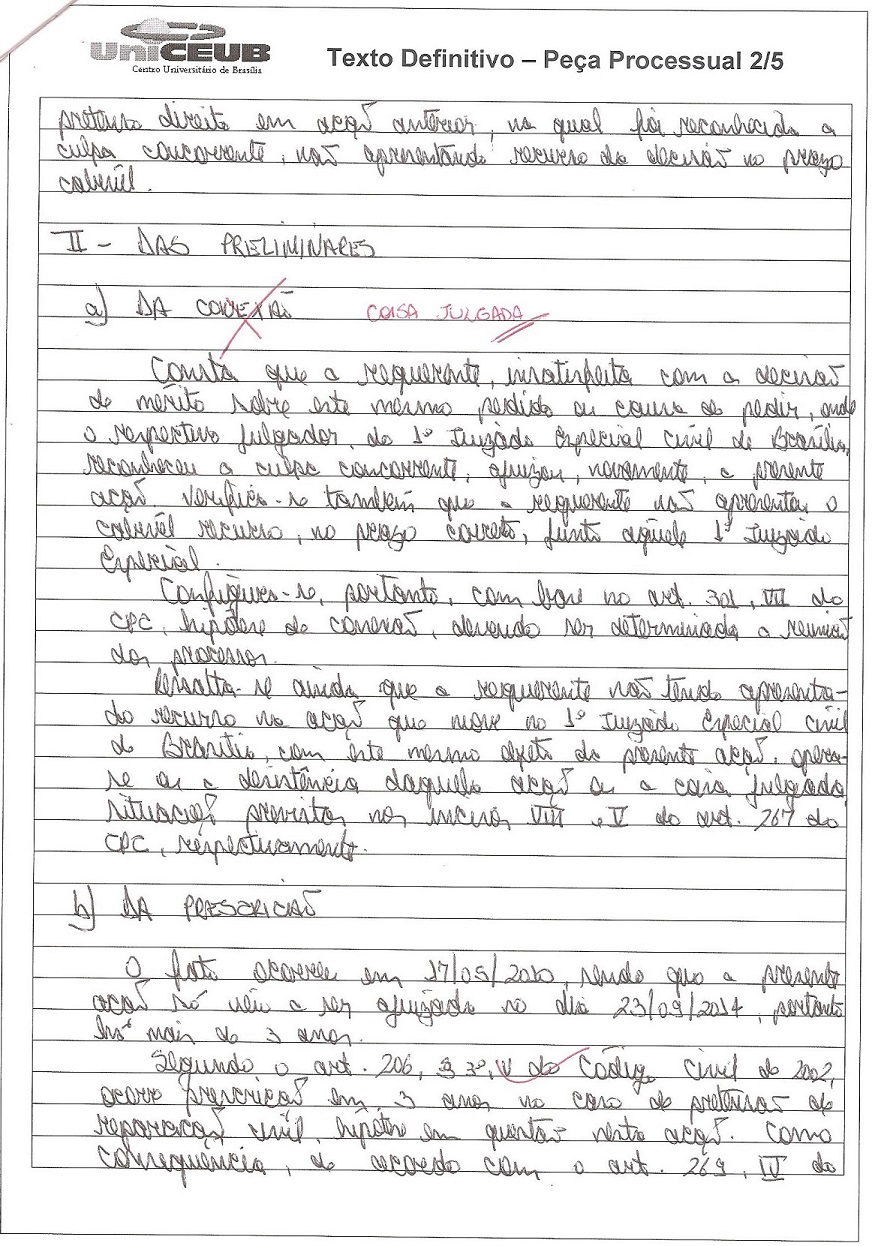 UniCEUB
Centro Universitário de Brasília
Texto Definitivo – Peça Processual 2/5
pretenso direito em ação anterior, na qual foi reconhecida a
culpa concorrente, não apresentando recurso da decisão no prazo
cabível.
II - DAS PRELIMINARES
a) DA CONEXÃO COISA JULGADA
Consta que a requerente, insatisfeita com a decisão
de mérito sobre este mesmo pedido ou causa de pedir, onde
o respectivo julgador, do 1º Juizado Especial Civil de Brasília,
reconheceu a culpa concorrente, ajuizou, novamente, a presente
ação. Verifica-se também que a requerente não apresentou o
cabível recurso, no prazo correto, junto aquele 1º Juizado
Especial.
Configura-se, portanto, com base no art. 301, VII do
CPC, hipótese de conexão, devendo ser determinada a reunião
dos processos.
Ressalta-se ainda que a requerente não tendo apresenta-
do recurso na ação que move no 1º Juizado Especial Civil
de Brasília, com este mesmo objeto da presente ação, opera-
se ou a desistência daquela ação ou a coisa julgada,
situações previstas nos incisos VIII e V do art. 267 do
CPC, respectivamente.
b) DA PRESCRIÇÃO
O fato ocorreu em 17/05/2010, sendo que a presente
ação só veio a ser ajuizada no dia 23/09/2014, portanto
há mais de 3 anos.
Segundo o art. 206, § 3º, V do Código Civil de 2002,
ocorre prescrição em 3 anos no caso de pretensão de
reparação civil, hipótese em questão nesta ação. Como
consequência, de acordo com o art. 269, IV do